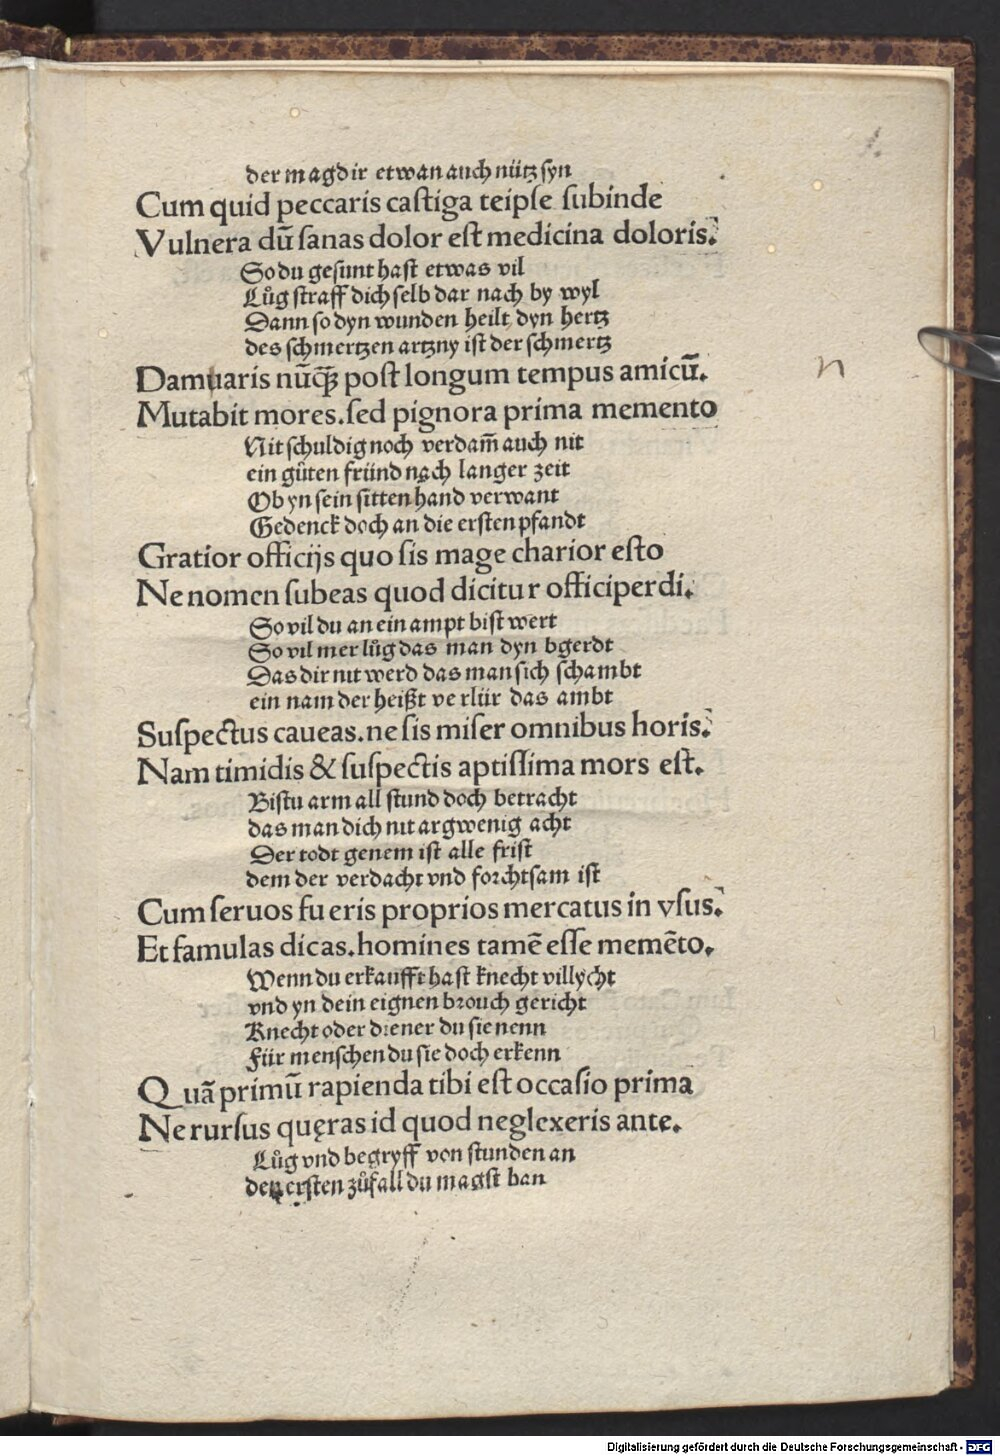 der mag dir etwan auch nütz syn
Cum quid peccaris castiga teipse subinde
Vulnera dū sanas dolor est medicina doloris.
So du gesunt hast etwas vil
Lůg straff dich selb dar nach by wyl
Dann so dyn wunden heilt dyn hertz
des schmertzen artzny ist der schmertz
Damnaris nūq̄ꝫ post longum tempus amicū.
Mutabit mores. sed pignora prima memento
Nit schuldig noch verdam̄ auch nit
ein gůten fründ nach langer zeit
Ob yn sein sitten hand verwant
Gedenck doch an die ersten pfandt
Gratior officijs quo sis mage charior esto
Ne nomen subeas quod dicitur officiperdi.
So vil du an ein ampt bist wert
So vil mer lůg das man dyn bgerdt
Das dir nit werd das man sich schambt
ein nam der heißt verlür das ambt
Suspectus caueas. ne sis miser omnibus horis.
Nam timidis & suspectis aptissima mors est.
Bistu arm all stund doch betracht
das man dich nit argwenig acht
Der todt genem ist alle frist
dem der verdacht vnd forchtsam ist
Cum seruos fueris proprios mercatus in vsus.
Et famulas dicas. homines tamē esse memēto.
Wenn du erkaufft hast knecht villycht
vnd yn dein eignen brouch gericht
Knecht oder diener du sie nenn
Für menschen du sie doch erkenn
Quā primū rapienda tibi est occasio prima
Ne rursus quęras id quod neglexeris ante.
Lůg vnd begryff von stunden an
den ersten zůfall du magst han
n
1.
Digitalisierung gefördert durch die Deutsche Forschungsgemeinschaft - DFG